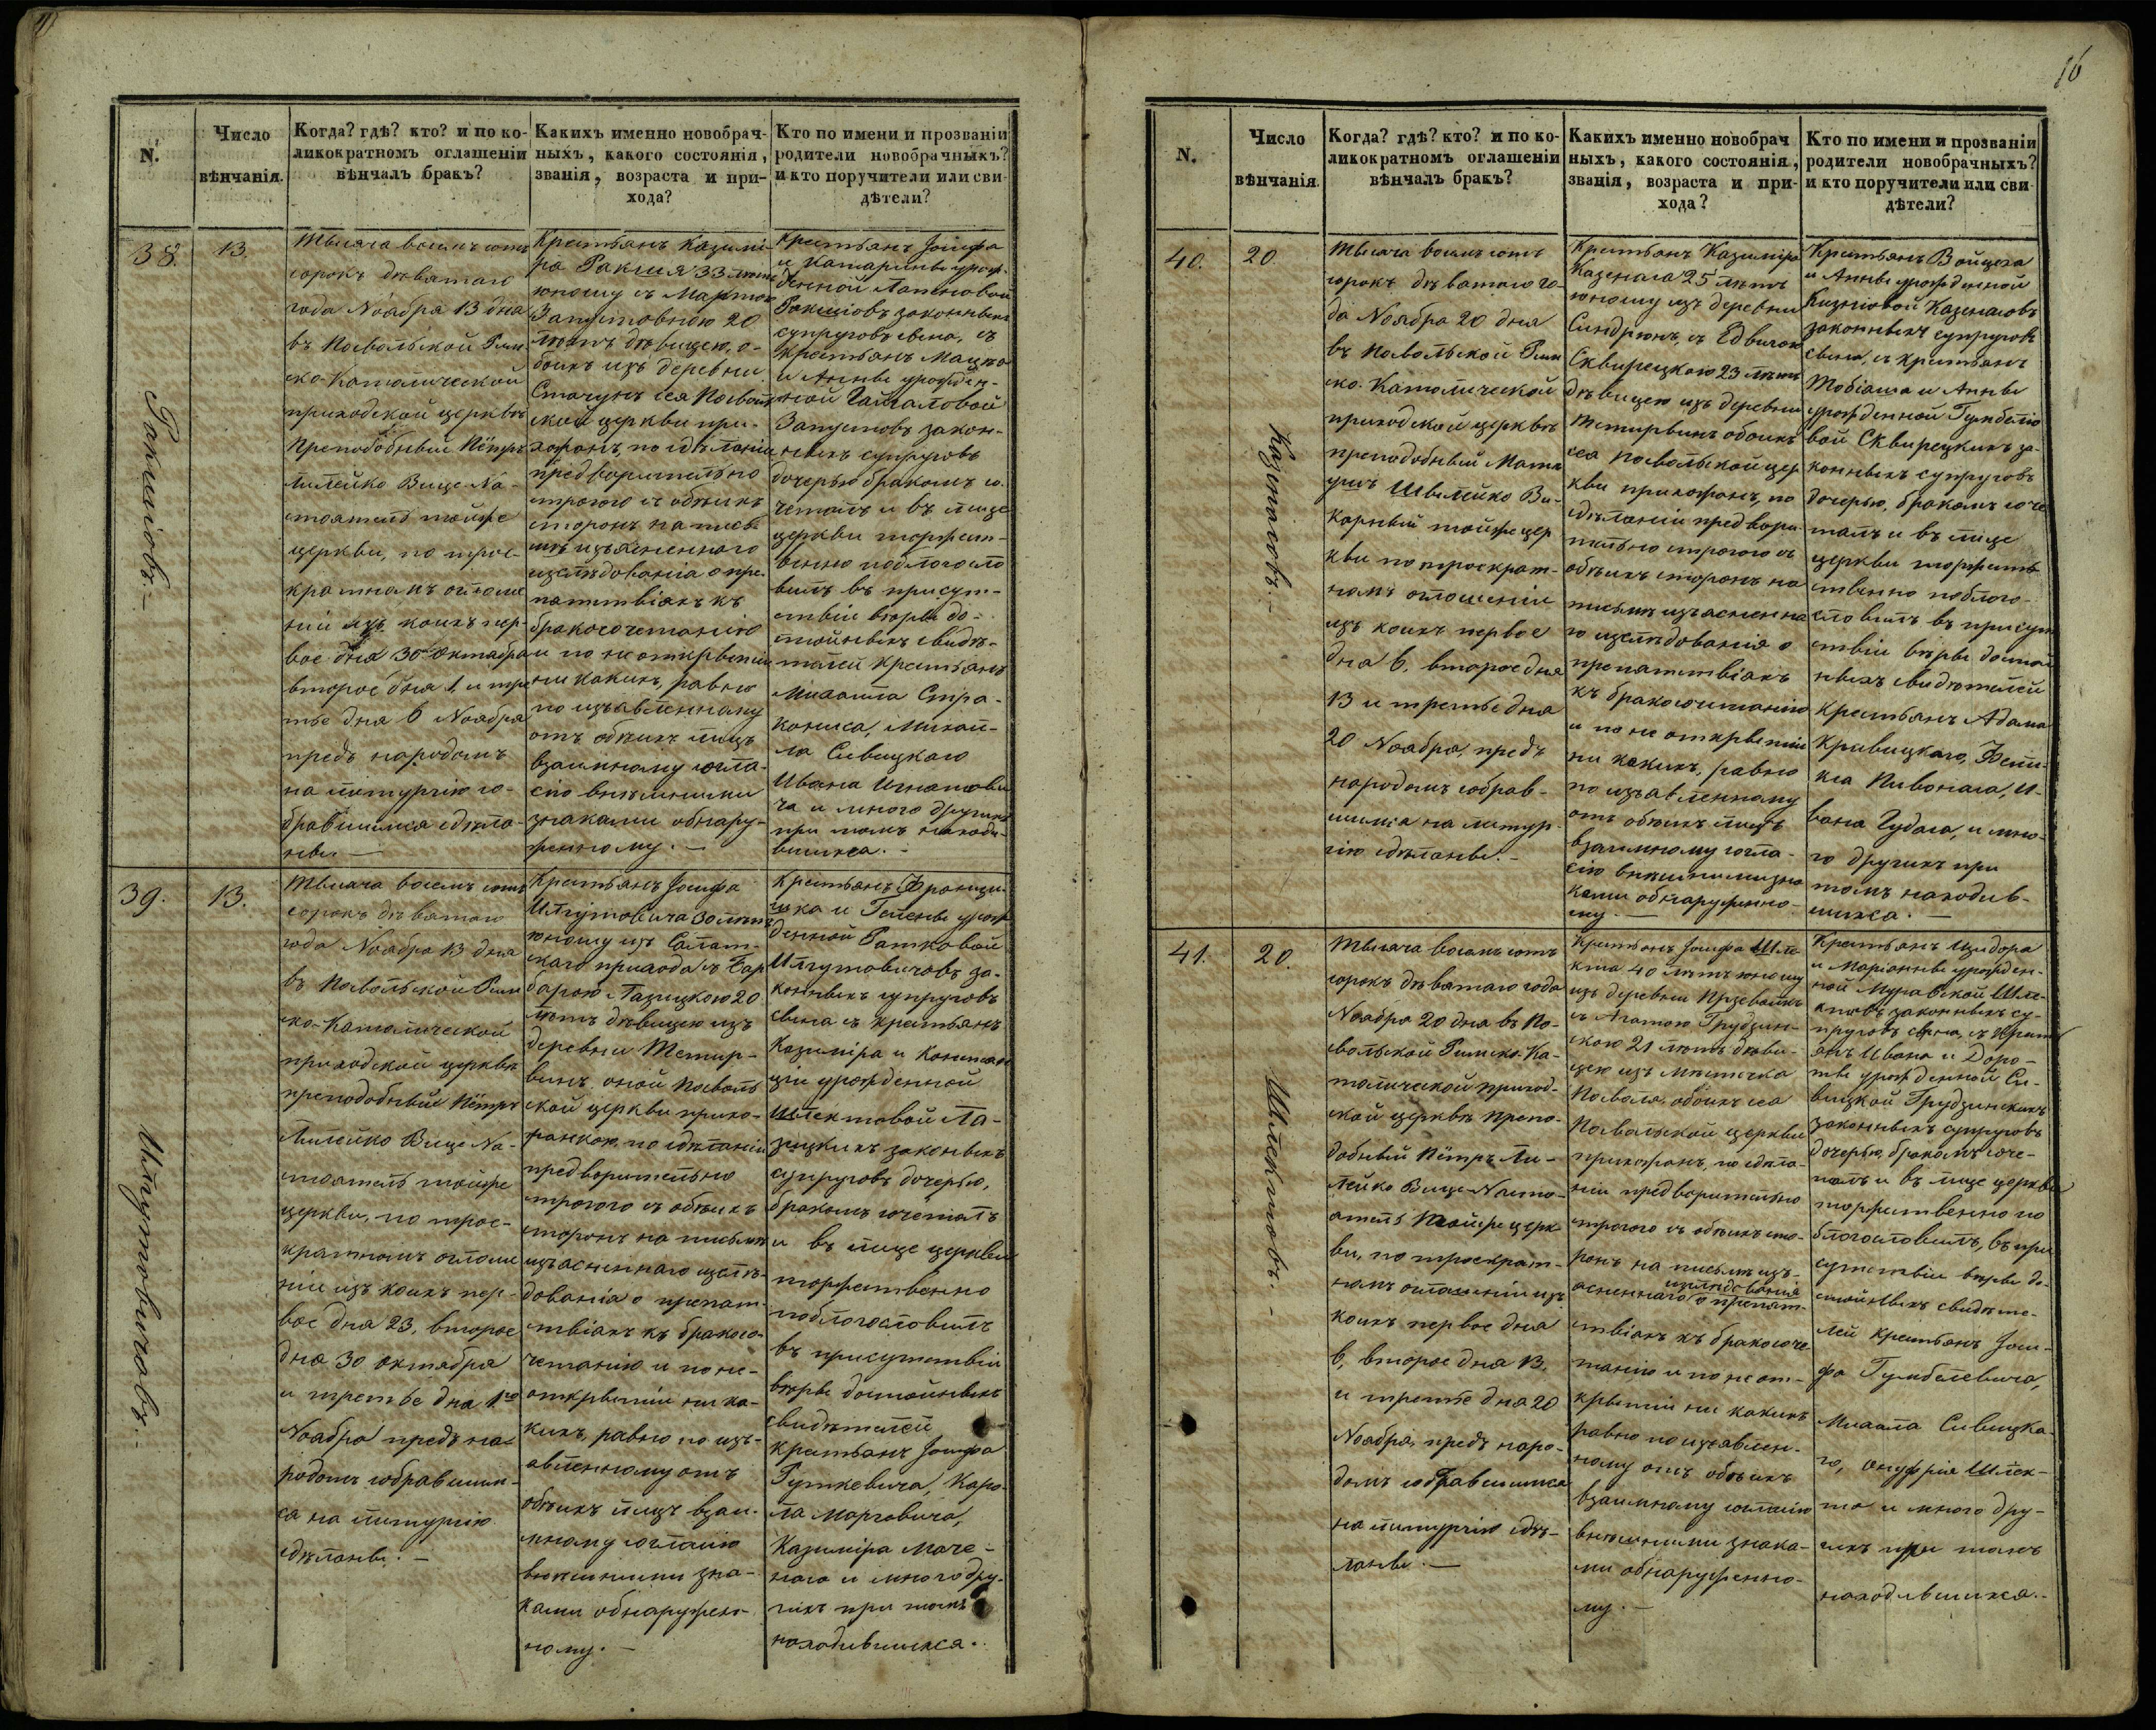 16
N.
Число
вѣнчанія.
Когда? гдѣ? кто? и по ко-
ликократномъ оглашеніи
вѣнчалъ бракъ?
Какихъ именно новобрач-
ныхъ, какого состоянія,
званія, возраста и при-
хода?
Кто по имени и прозваніи
родители новобрачныхъ?
и кто поручители или сви-
дѣтели?
38.
13.
Тысяча восемь сотъ
сорокъ девятаго
года Ноября 13 дня
въ Посвольской Рим
ско-Католической
приходской церквѣ
Преподобный Пётръ
Лилейко Вице-На-
стоятель тойже
церкви, по трое-
кратномъ оглаше
ніи изъ коихъ пер-
вое дня 30 Октября
второе дня 1. и тре
тье дня 6 Ноября
предъ народомъ
на литургію со-
бравшимся сдѣла-
ны. —
Крестьянъ Казимі-
ра 33 лѣтъ
юношу съ Мартою
20
лѣтъ дѣвицею, о-
боихъ изъ деревни
сея Посволь
ской церкви при-
хожанъ, по сдѣланіи
предварительно
строгого съ обѣихъ
сторонъ на письмѣ
изъясненного
изслѣдованія о пре-
пятствіяхъ къ
бракосочетанію
и по не открытіи
ни какихъ, равно
по изъявленному
отъ обѣихъ лицъ
взаимному согла-
сію внѣшними
знаками обнару-
женному. —
Крестьянъ Іосифа
и Катарины урож-
денной
законныхъ
супруговъ сына, съ
Крестьянъ
и Анны урожден-
ной
закон-
ныхъ супруговъ
дочерью бракомъ со-
четалъ и въ лице
церкви торжест-
венно поблагосло
вилъ въ присут-
ствіи вѣры до-
стойныхъ свидѣ-
телей Крестьянъ
Михаила Стра-
Михаи-
ла Сивицкаго
Ивана Игнатови
ча и много другихъ
при томъ находи-
вшихся. —
39.
13.
Тысяча восемь сотъ
сорокъ девятаго
года Ноября 13 дня
въ Посвольской Рим
ско-Католической
приходской церквѣ
преподобный Пётръ
Лилейко Вице-На-
стоятель тойже
церкви, по трое-
кратномъ оглаше
ніи изъ коихъ пер-
вое дня 23, второе
дня 30 Октября
и третье дня 1го
Ноября предъ на-
родомъ собравшим-
ся на литургію
сдѣланы. —
Крестьянъ Іосифа
30 лѣтъ
юношу изъ Салат-
скаго прихода съ Бар
барою Лазицкою 20
лѣтъ дѣвицею изъ
деревни Тетир-
винъ оной Посволь
ской церкви прихо-
жанкою, по сдѣланіи
предварительно
строгого съ обѣихъ
сторонъ на письмѣ
изъясненнаго изслѣ-
дованія о препят-
ствіяхъ къ бракосо-
четанію и по не-
открытіи ни ка-
кихъ, равно по изъ-
явленному отъ
обѣихъ лицъ взаи-
мному согласію
внѣшними зна-
ками обнаружен-
ному. —
Крестьянъ Франци-
шка и Гелены урож
денной Ратковой
за-
конныхъ супруговъ
сына съ Крестьянъ
Казиміра и Констан
ціи урожденной
Шлектовой Ла-
зицкихъ законныхъ
супруговъ дочерью,
бракомъ сочеталъ
и въ лице церкви
торжественно
поблагословилъ
въ присутствіи
вѣры достойныхъ
свидѣтелей
Крестьянъ Іосифа
Руткевича, Каро-
ла
Казиміра
и много дру-
гихъ при томъ
находившихся.
N.
Число
вѣнчанія.
Когда? гдѣ? кто? и по ко-
ликократномъ оглашеніи
вѣнчалъ бракъ?
Какихъ именно новобрач
ныхъ, какого состоянія,
званія, возраста и при-
хода?
Кто по имени и прозваніи
родители новобрачныхъ?
и кто поручители или сви-
дѣтели?
40.
20
Казенасовъ. —
Тысяча восемь сотъ
сорокъ девятаго го-
да Ноября 20 дня
въ Посвольской Рим
ско-Католической
приходской церквѣ
преподобный Мате
ушъ Швилейко Ви-
карный тойже цер
кви по троекрат-
номъ оглашеніи
изъ коихъ первое
дня 6, второе дня
13 и третье дня
20 Ноября, предъ
народомъ собрав-
шимся на литур-
гію сдѣланы. —
Крестьянъ Казиміра
Казенаса 25 лѣтъ
юношу изъ деревни
съ Едвигою
Сквирецкою 23 лѣтъ
дѣвицею изъ деревни
Тетирвинъ обоихъ
сея Посвольской цер
кви прихожанъ, по
сдѣланіи предвари-
тельно строгого съ
обѣихъ сторонъ на
письмѣ изъясненна
го изслѣдованія о
препятствіяхъ
къ бракосочетанію
и по не открытіи
ни какихъ, равно
по изъявленному
отъ обѣихъ лицъ
взаимному согла-
сію внѣшними зна
ками обнаруженно-
му. —
Крестьянъ Войцеха
и Анны урожденной
Казенасовъ
законныхъ супруговъ
сына, съ Крестьянъ
Тобіаша и Анны
урожденной
Сквирецкихъ за-
конныхъ супруговъ
дочерью, бракомъ соче
талъ и въ лице
церкви торжест-
венно поблаго-
словилъ въ присут
ствіи вѣры достой
ныхъ свидѣтелей
Крестьянъ Адама
Кривицкаго, Фели-
кса Пивонаса, И-
вана Гудаса, и мно-
го другихъ при
томъ находив-
шихся. —
41.
20.
Шлектовъ. —
Тысяча восемь сотъ
сорокъ девятаго года
Ноября 20 дня въ По-
свольской Римско-Ка-
толической приход-
ской церквѣ препо-
добный Пётръ Ли-
лейко Вице-Насто-
ятель тойже церк
ви, по троекрат-
номъ оглашеніи изъ
коихъ первое дня
6, второе дня 13,
и третье дня 20
Ноября, предъ наро-
домъ собравшимся
на литургію сдѣ-
ланы. —
Крестьянъ Іосифа Шле
кта 40 лѣтъ юношу
изъ деревни
съ Агатою Грудзин-
скою 21 лѣтъ дѣви-
цею изъ мѣстечка
Посволя, обоихъ сея
Посвольской церкви
прихожанъ, по сдѣла-
ніи предварительно
строгого съ обѣихъ сто-
ронъ на письмѣ изъ-
ясненнаго изслѣдованія
о препят-
ствіяхъ къ бракосоче
танію и по не от-
крытіи ни какихъ
равно по изъявлен-
ному отъ обѣихъ
взаимному согласію
внѣшними знака-
ми обнаруженно-
му. —
Крестьянъ Изидора
и Маріанны урожден-
ной Муравской Шле-
ктовъ законныхъ су-
пруговъ сына, съ Крест
янъ Ивана и Доро-
ты урожденной Си-
вицкой Грудзинскихъ
законныхъ супруговъ
дочерью, бракомъ соче-
талъ и въ лице церкви
торжественно по
благословилъ, въ при
сутствіи вѣры до-
стойныхъ свидѣте-
лей Крестьянъ Іоси-
фа Гумбелевича,
Михаила Сивицка-
го, Онуфрія Шлек-
та и много дру-
гихъ при томъ
находившихся. —